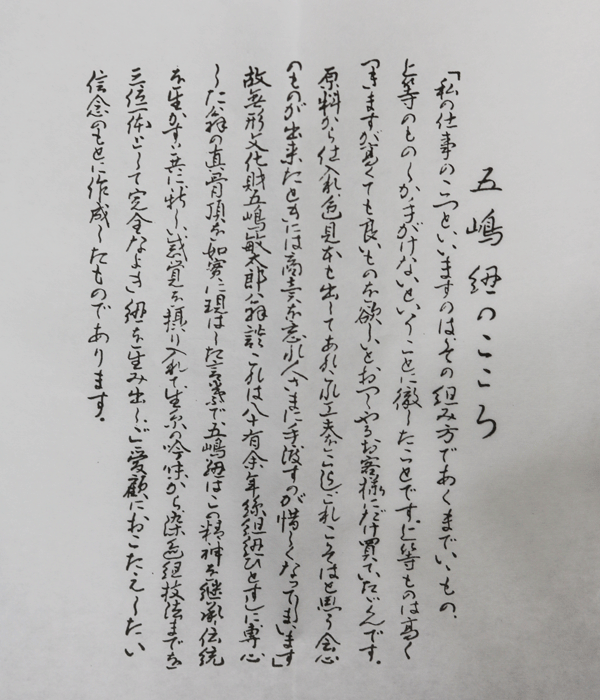 五嶋紐のこころ
「私の仕事のこつといいますのは、その組み方であくまでいゝもの、
上等のものしか手がけないということに徹したことです。上等ものは高く
つきますが高くても良いものを欲しいとおっしゃるお客様にだけ買ていたゞくんです。
原料から仕入れ色見本も出してあれこれ工夫をこらしこれこそはと思う会心
のものが出来たときには商売を忘れ人さまに手渡すのが惜しくなってしまいます」
故無形文化財五嶋敏太郎翁談 これは八十有余年絲組紐ひとすじに専心
した翁の真骨頂を如実に現はした言葉で五嶋紐はこの精神を継承伝統
を生かすと共に新しい感覚を摂り入れて生糸の吟味から染色組技法までを
三位一体として完全なよき紐を生み出し、ご愛顧におこたえしたい
信念のもとに作成したものであります。